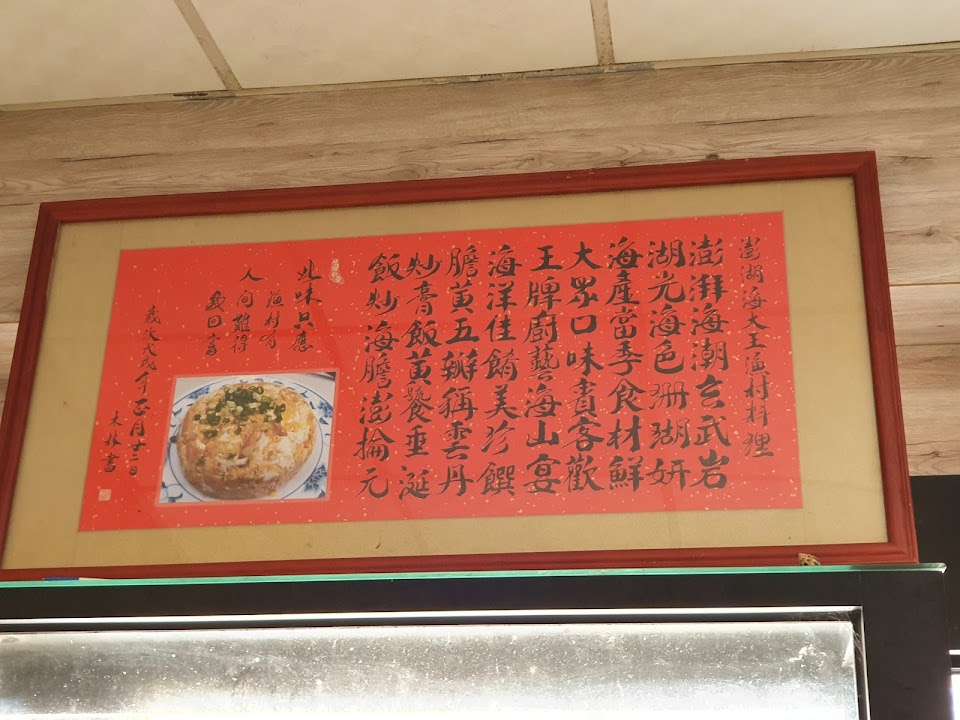 澎湖海大王漁村料理
澎湃海潮玄武岩
湖光海色珊瑚妍
海產當季食材鮮
大眾口味賓客歡
王牌廚藝海山宴
海洋佳餚美珍饌
膽黃五瓣稱雲丹
炒膏飯黃饞垂涎
飯炒海膽澎掄元
此味只應
漁村有
人間難得
幾回嘗
歲次戊戌年正月廿二日
林書